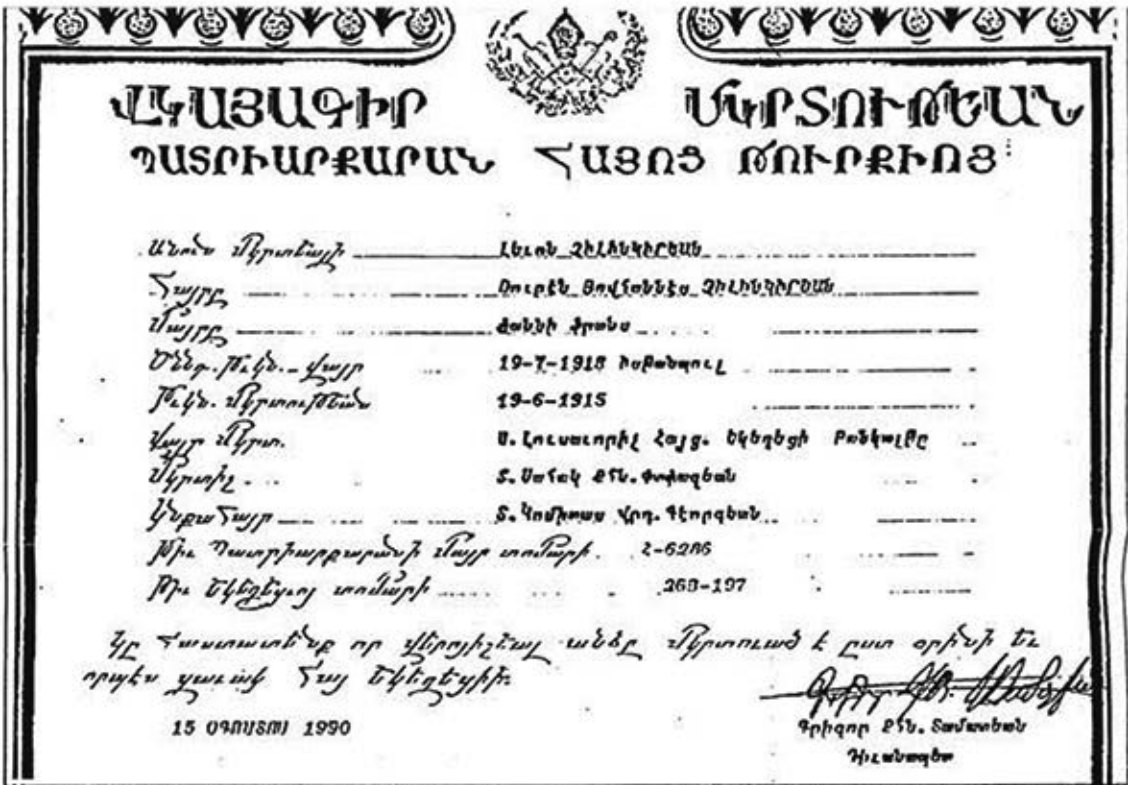 ՎԿԱՅԱԳԻՐ ՄԿՐՏՈՒԹԵԱՆ
ՊԱՏՐԻԱՐՔԱՐԱՆ ՀԱՅՈՑ ԹՈՒՐՔԻՈՅ
Անուն Մկրտեալի Լեւոն ՉԻԼԻՆԿԻՐԵԱՆ
Հայրը Յովհաննէս ՉԻԼԻՆԳԻՐԵԱՆ
Մայրը Ֆրանս
Ծննդ. Թւկն. - վայր 19-7-1915
Թւկն. Մկրտութեան 19-6-1915
վայր Մկրտ. Ս. Լուսաւորիչ Հայց. եկեղեցի Բանկալթը
Մկրտիչ Տ. Սահակ ՔՀՆ.
Կնքահայր Տ. Կոմիտաս Վրդ. Գէորգեան
Թիւ Պատրիարքարանի Մայր տոմարի 2-6286
Թիւ Եկեղեցւոյ տոմարի 268-197
կը հաստատենք որ վերոյիշեալ անձը Մկրտուած է ըստ օրինի եւ
որպէս զաւակ Հայ Եկեղեցիին
15 ՕԳՈՍՏՈՍ 1990
Գրիգոր ՔՀՆ. Տամատեան
Դիւանապետ